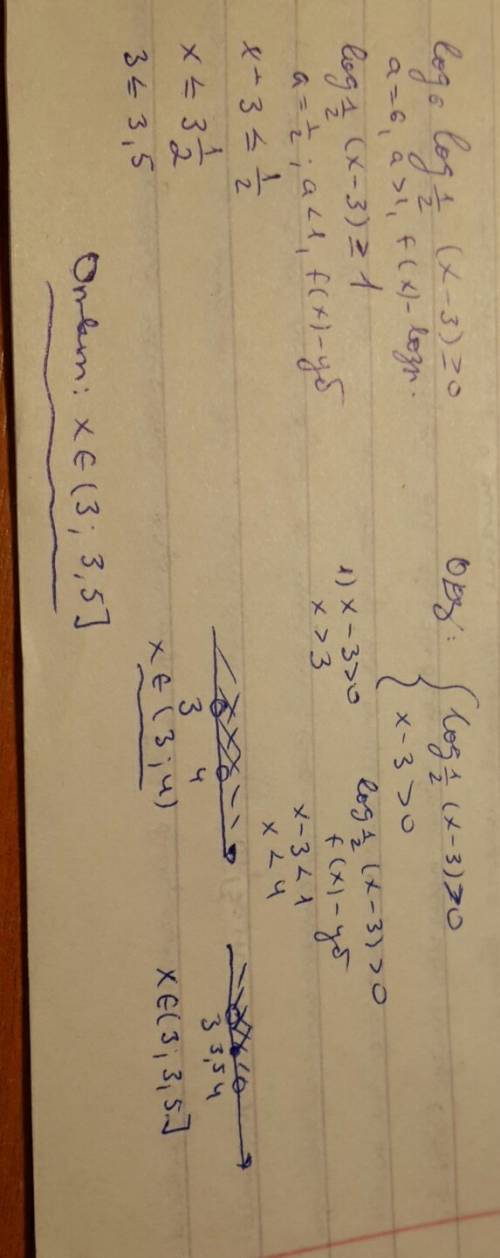 log₆ log½ (x-3) ≥ 0
a=6, a>1, f(x)-возр.
log½ (x-3) ≥ 1
a=½; a<1, f(x)-уб
x-3 ≤ ½
x ≤ 3½
3 ≤ 3,5
Ответ: x∈(3; 3,5]
ОДЗ: { log½ (x-3) > 0
x-3 > 0
1) x-3>0
x>3
log½ (x-3) > 0
f(x)-уб
x-3<1
x<4
3 4
x∈(3; 4)
3 3,5 4
x∈(3; 3,5]